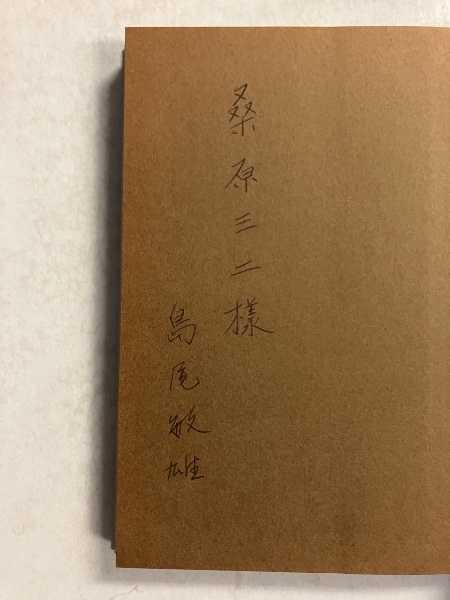 桑原三二様
島尾敏雄